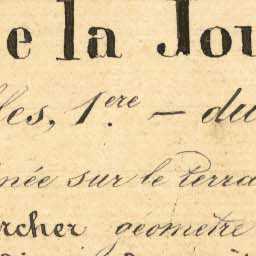 e la Jou
les, 1.ère – du
née sur le terra
rcher géomètre